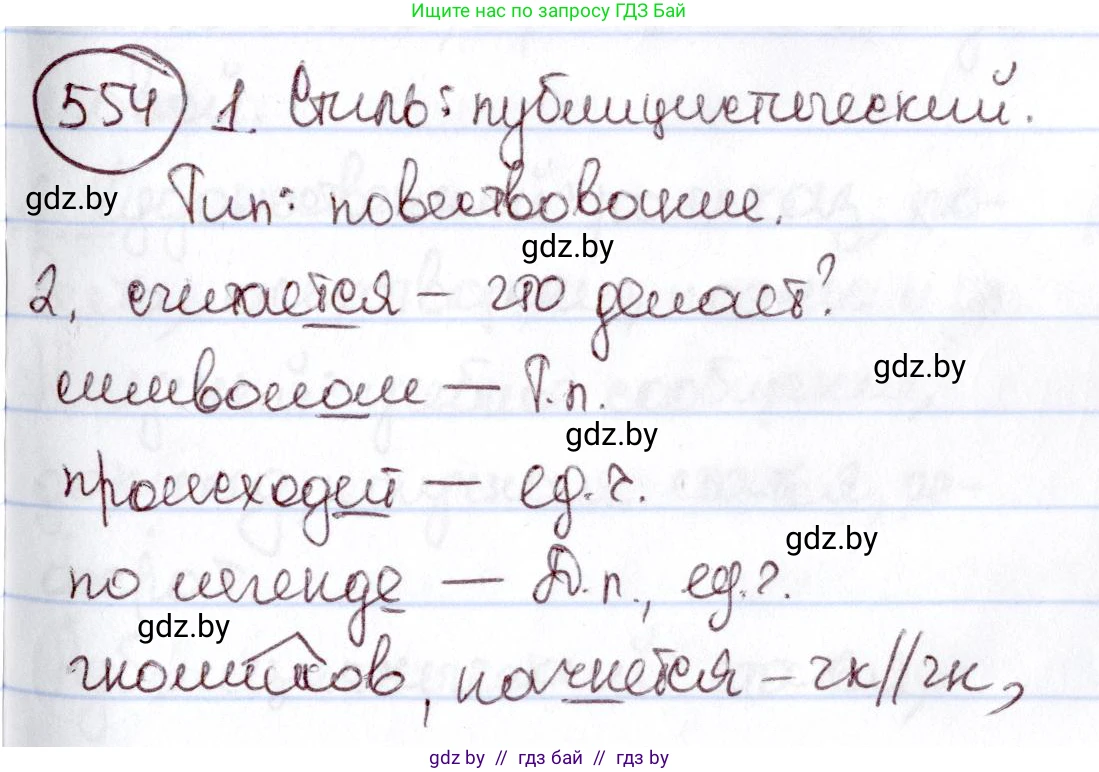 Ищите нас по запросу ГДЗ Бай
554 1. Стиль: публицистический.
gdz.by
Тип: повествование.
gdz.by
2. считается – что делает?
gdz.by
символом – Т.п.
gdz.by
происходит – ед.ч.
gdz.by
по легенде – Д.п., ед.ч.
gdz.by
гномиков, начнётся – чн//чн,
gdz.by // гдз бай // гдз by